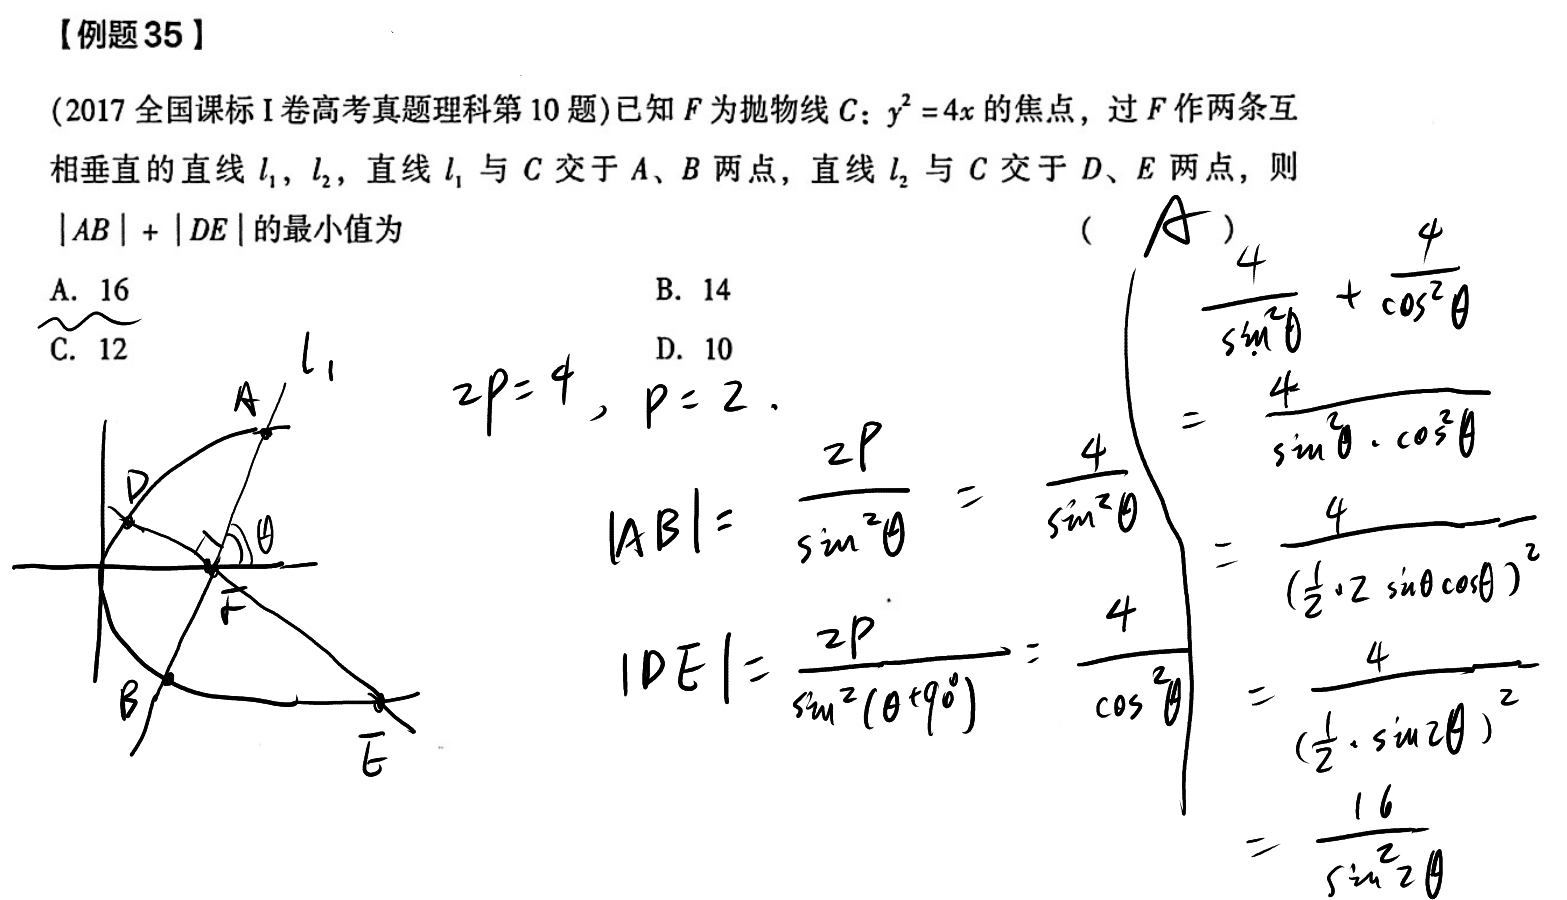 【例题 35】
(2017 全国课标 I 卷高考真题理科第 10 题)已知 F 为抛物线 C：y² = 4x 的焦点，过 F 作两条互
相垂直的直线 l₁，l₂，直线 l₁ 与 C 交于 A、B 两点，直线 l₂ 与 C 交于 D、E 两点，则
|AB| + |DE| 的最小值为 ( A )
A. 16 B. 14
C. 12 D. 10
l₁
A
D
θ
F
B
E
2p = 4 , p = 2 .
|AB| = 2P/sin²θ = 4/sin²θ
|DE| = 2P/sin²(θ+90°) = 4/cos²θ
4/sin²θ + 4/cos²θ
= 4/(sin²θ · cos²θ)
= 4/(½ · 2 sinθ cosθ)²
= 4/(½ · sin2θ)²
= 16/sin²2θ